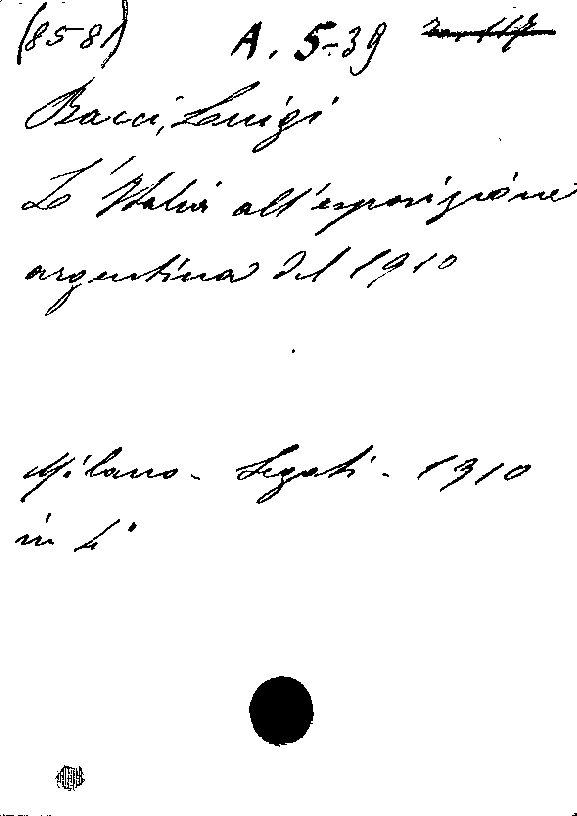 (8581) A. 5-39
Bacci, Luigi
L'Italia all'esposizione
argentina del 1910
Milano - Segati - 1910
in 4°